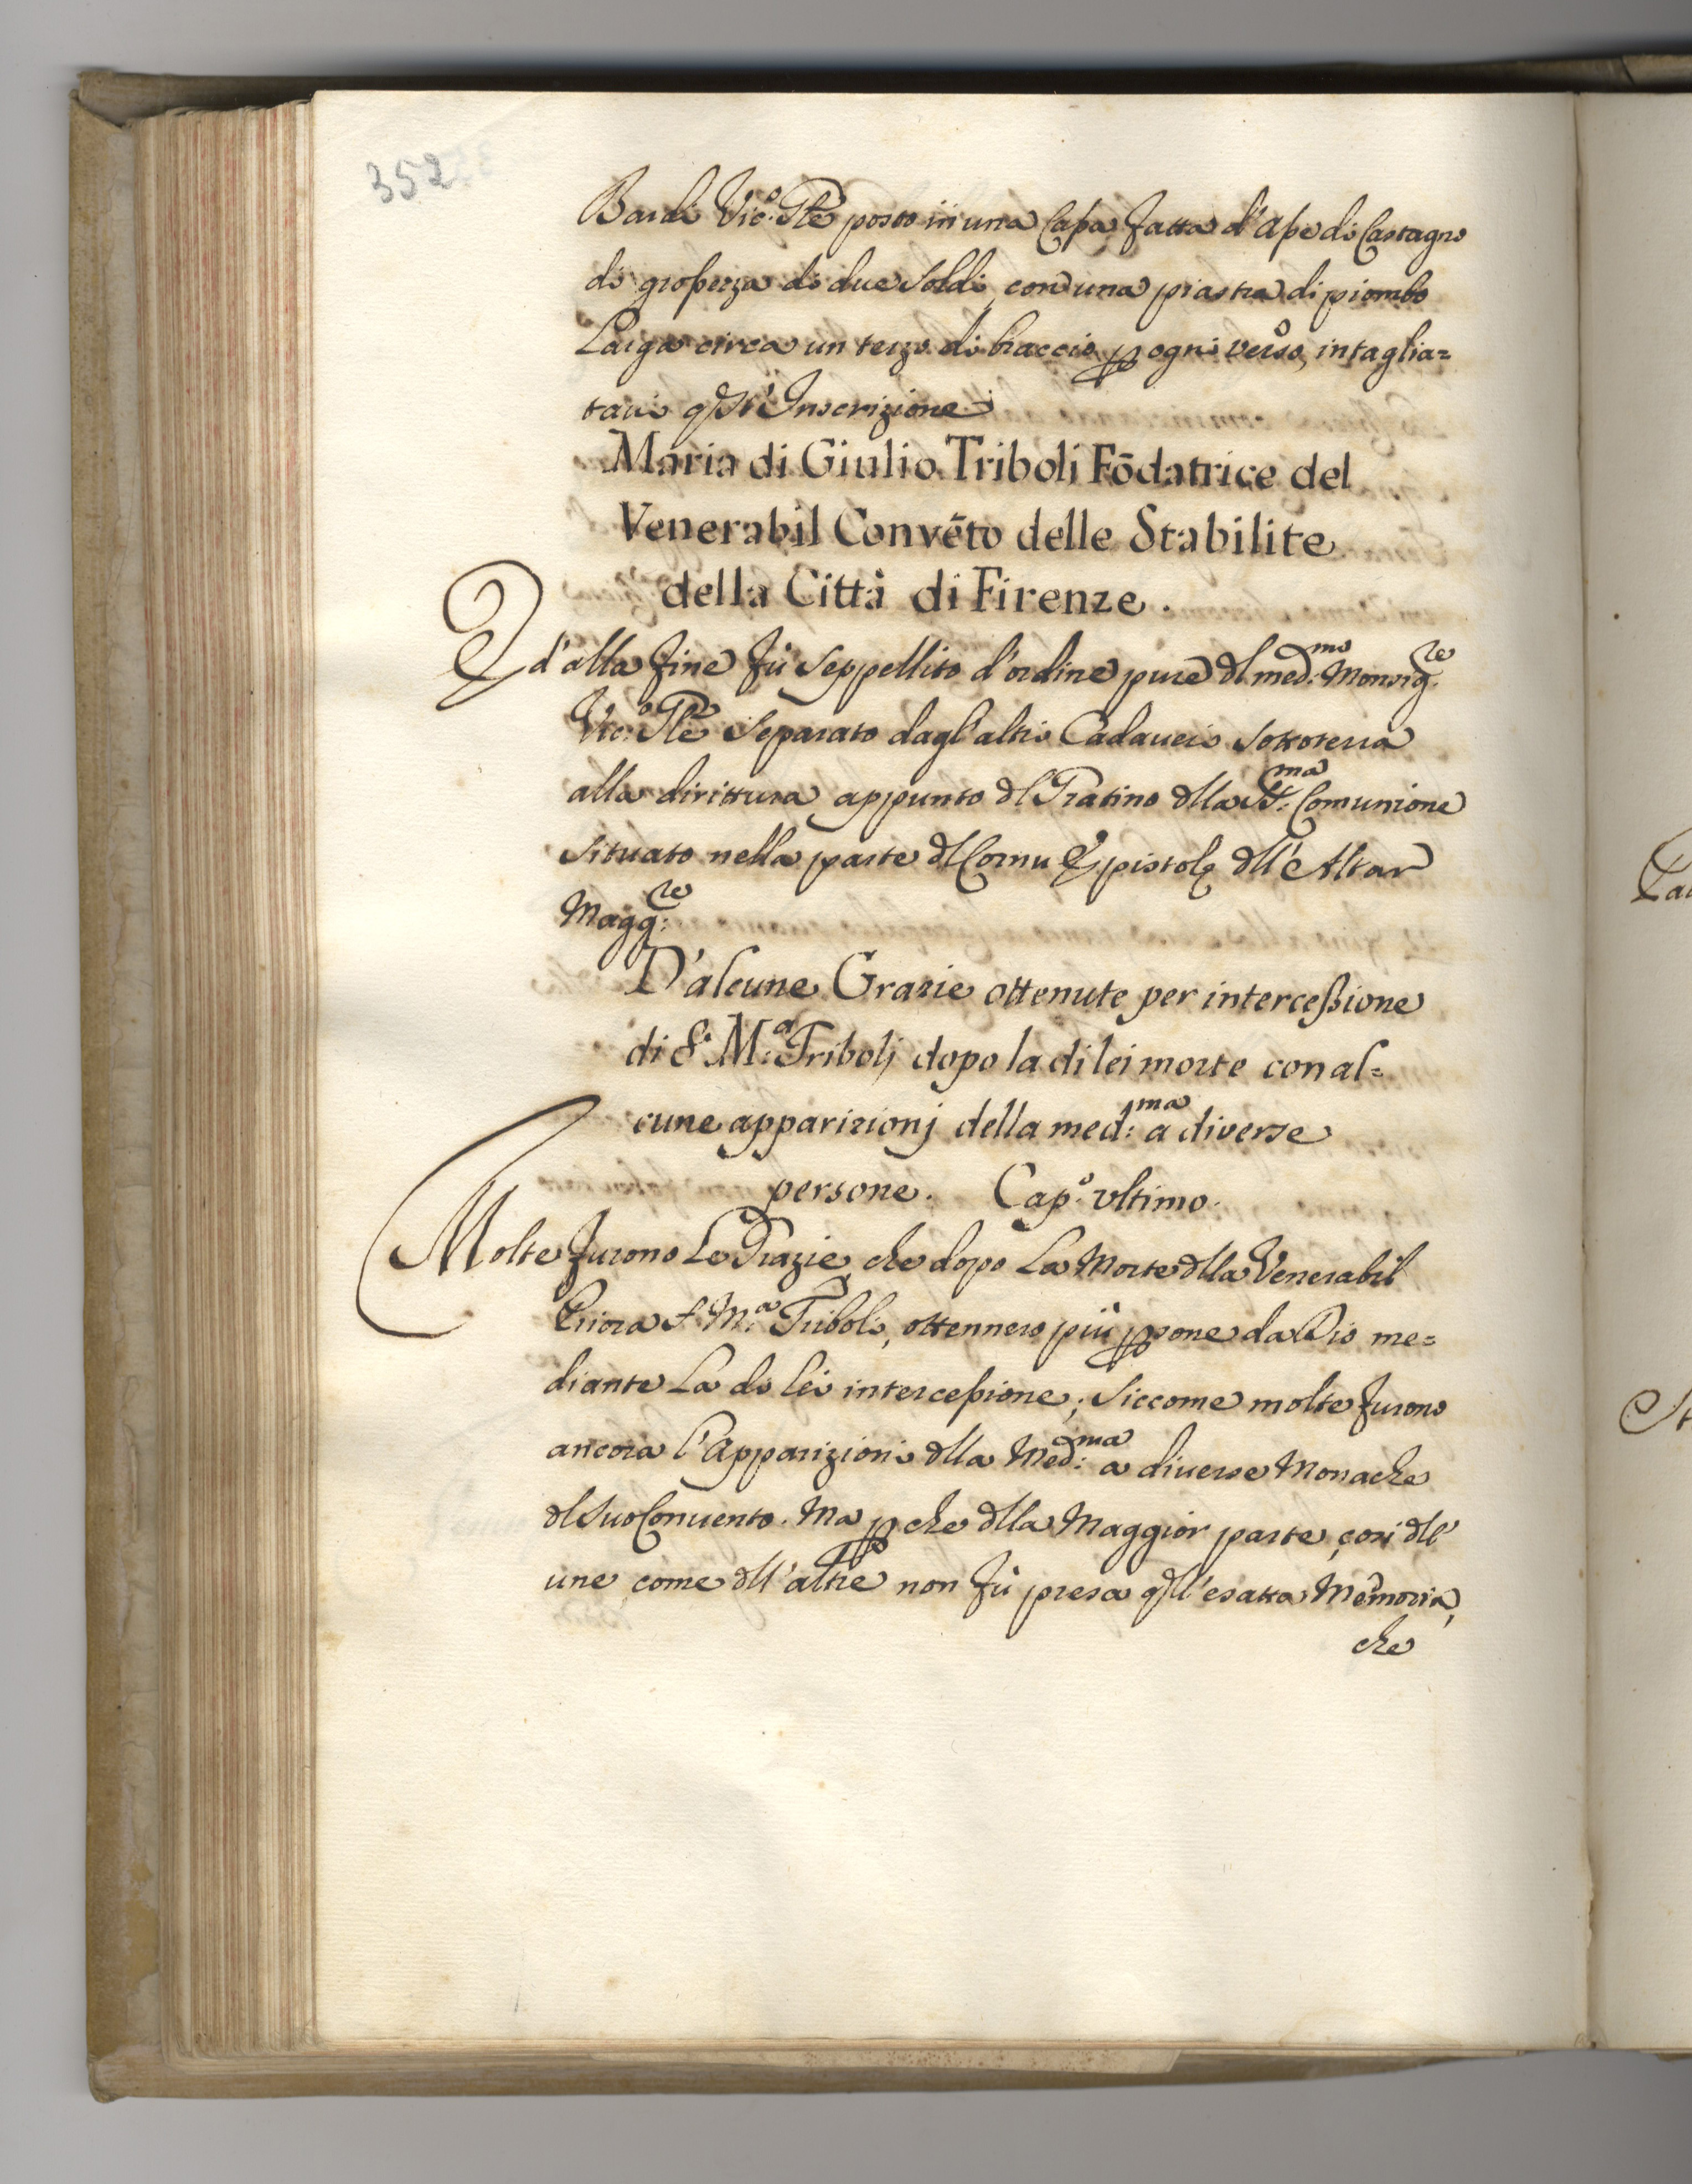 352
Bardi Vic.º Gle posto in una Cassa fatta d'Asse di Castagno
di grossezza di due soldi, con una piastra di piombo
Larga circa un terzo di braccio p ogni verso, intaglia=
tavi qst'Inscrizione
Maria di Giulio Triboli Fōdatrice del
Venerabil Convēto delle Stabilite
della Città di Firenze.
E d'alla fine fù Seppellito d'ordine pure dl med:mo Monsig:re
Vic:º Gle Separato dagl'altri Cadaveri sottoterra
alla dirittura appunto dl Gratino dlla SS:ma Comunione
situato nella parte dl Cornu Epistolę dll'Altar
Magg:re
D'alcune Grazie ottenute per interceßione
di S: M:a Tribolj dopo la di lei morte con al=
cune apparizionj della med:ma a diverse
persone. Cap:º vltimo.
Molte furono Le Grazie, che dopo La Morte dlla Venerabil
Priora S. M:a Triboli, ottennero più psone da Dio me=
diante La di lei intercessione; siccome molte furono
ancora l'Apparizioni dlla Med:ma a diverse Monache
dl suo Convento. Ma pche dlla Maggior parte, così dll'
une, come dll'altre non fù presa qll'esatta Memoria,
che